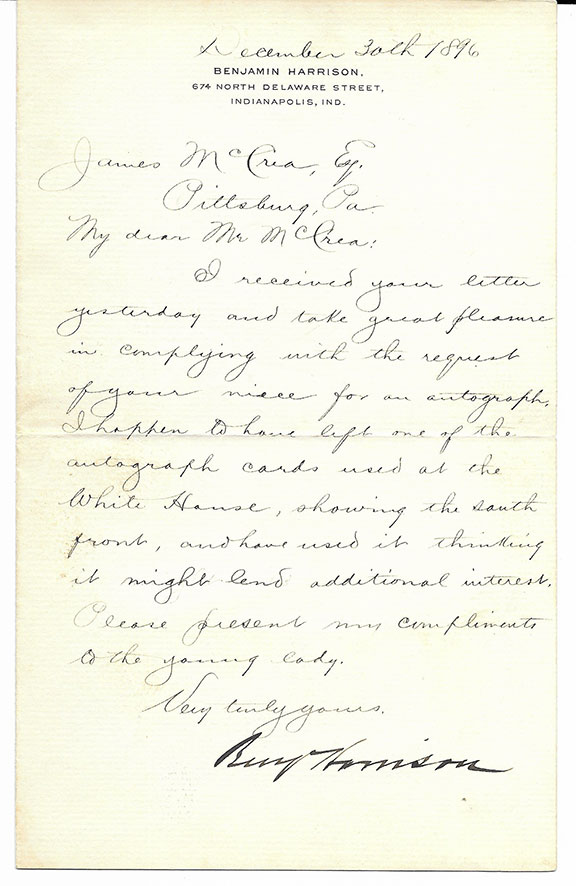 December 30th 1896
BENJAMIN HARRISON,
674 NORTH DELAWARE STREET,
INDIANAPOLIS, IND.
James McCrea, Esq.
Pittsburg, Pa.
My dear Mr McCrea:
I received your letter
yesterday and take great pleasure
in complying with the request
of your niece for an autograph.
I happen to have left one of the
autograph cards used at the
White House, showing the south
front, and have used it thinking
it might lend additional interest.
Please present my compliments
to the young lady.
Very truly yours.
Benj Harrison